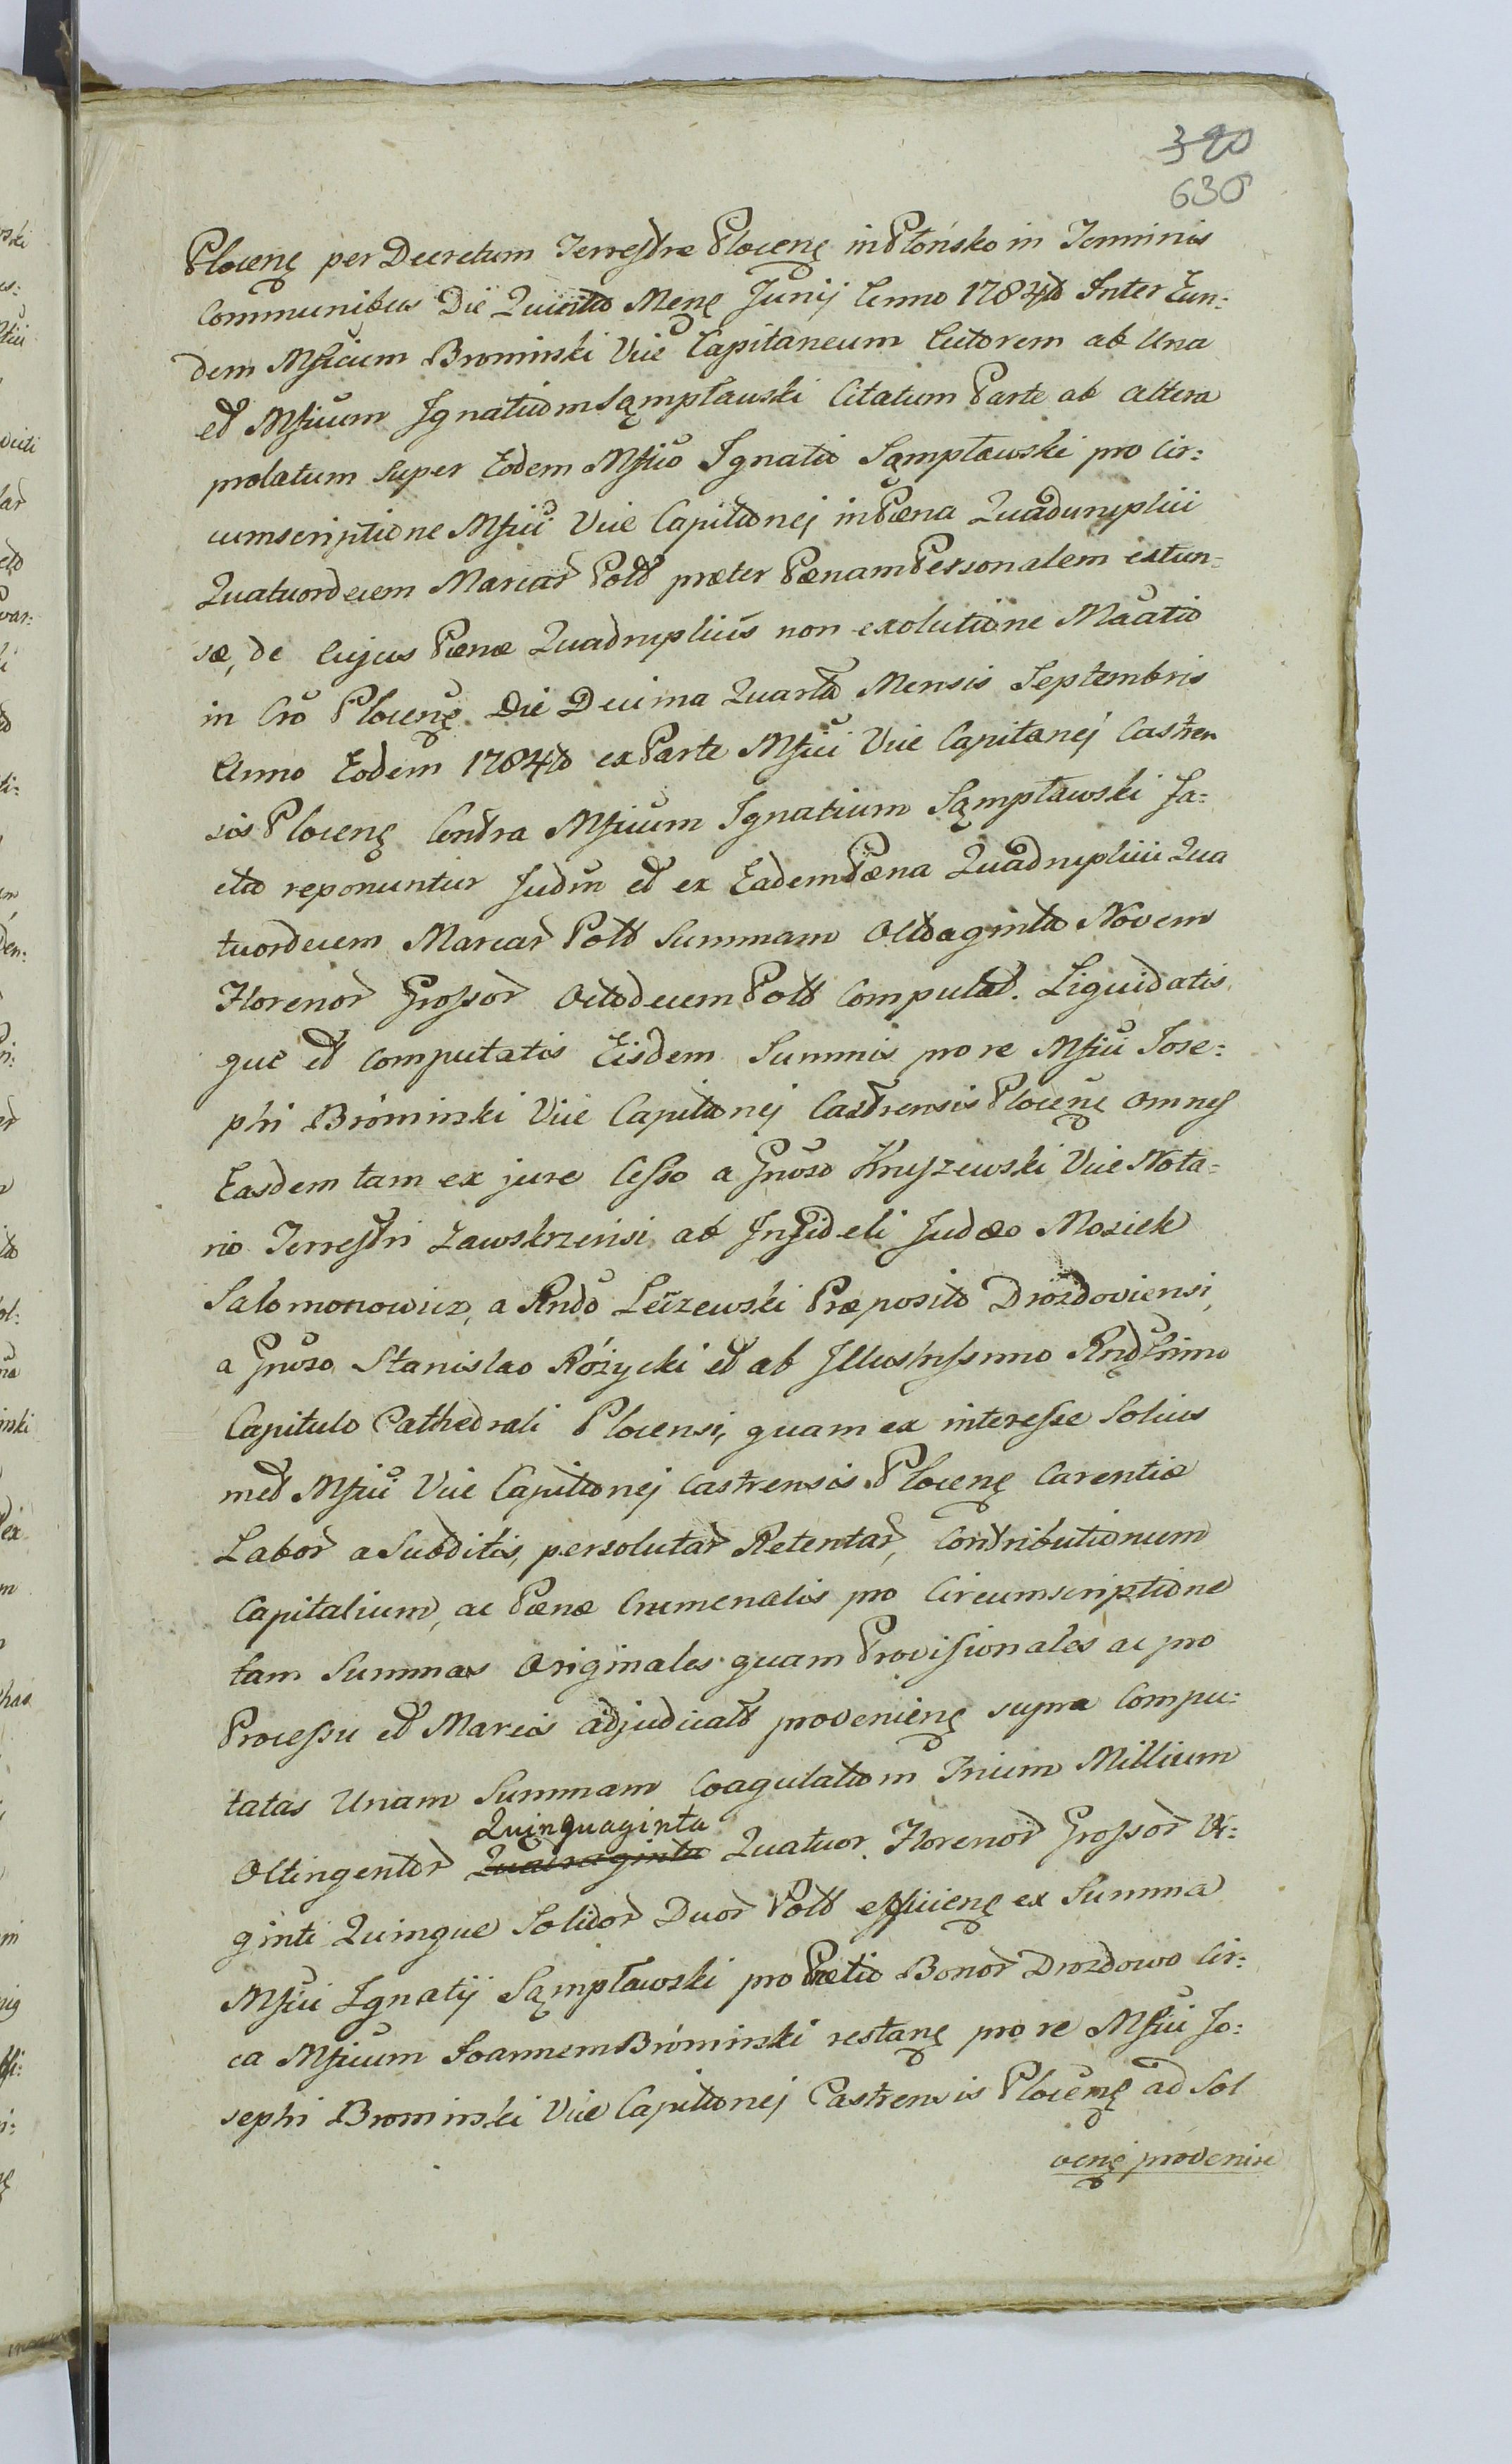 320
630
Plocenę per Decretum Terrestre Plocenę in Płońsko in Terminis
Communibus Die Quinta Menę Junij Anno 1784to Inter Eun:
dem Mficum Brominski Vice Capitaneum Actorem ab Una
et Mficum Ignatium Sąmpławski Citatum Parte ab altera
prolatum super Eodem Mfico Ignatio Sąmpławski pro Cir:
cumscriptione Mfici Vice Capitanej in Pæna Quadurupliii
Quatuordecem Marcar Poll præter Pænam Personalem extun:
sæ, de Cujus Pænæ Quadruplicis non exolutione Maatio
in Cro Plocenę Die Decima Quarta Mensis Septembris
Anno Eodem 1784to ex Parte Mfici Vice Capitanej Castren
sis Plocenę Contra Mficum Ignatium Sąmpławski Fa:
cta reponuntur Judm et ex Eadem Pæna Quadruplicii Qua
tuordecem Marcar Poll Summam Octoaginta Novem
Florenor Grossor Octodecem Poll Computat. Liquidatis
que et Computatis Eisdem Summis pro re Mfici Jose:
phi Brominski Vice Capitanej Castrensis Plocenę omnes
Easdem tam ex jure Cesso a Gnoso Kruszewski Vice Nota:
rio Terrestri Zawskrzensi, ab Infideli Judæo Moziek
Salomonowicz, a Rndo Leszewski Præposito Drozdoviensi,
a Gnoso Stanislao Różycki et ab Illustrissimo Rndssimo
Capitulo Cathedrali Plocensi, quam ex interesse Solius
met Mfici Vice Capitanej Castrensis Plocenę Carentiæ
Labor a Subditis, persolutar Retentar, Contributionum
Capitalium, ac Pænæ Crumenalis pro Circumscriptione
tam Summas Originales quam Provisionales ac pro
Processu et Marcis adjudicatt provenienę supra Compu:
tatas Unam Summam Coagulatam Trium Millium
Quinquaginta
Octingentor Quadraginta Quatuor Florenor Grossor Vi:
ginti Quinque Solidor Duor Poll efficienę ex Summa
Mfici Ignatij Sąmpławski pro Prætio Bonor Drozdowo Cir:
ca Mficum Joannem Brominski restanę pro re Mfici Jo:
sephi Brominski Vice Capitanej Castrensis Plocenę ad Sol
venę provenire